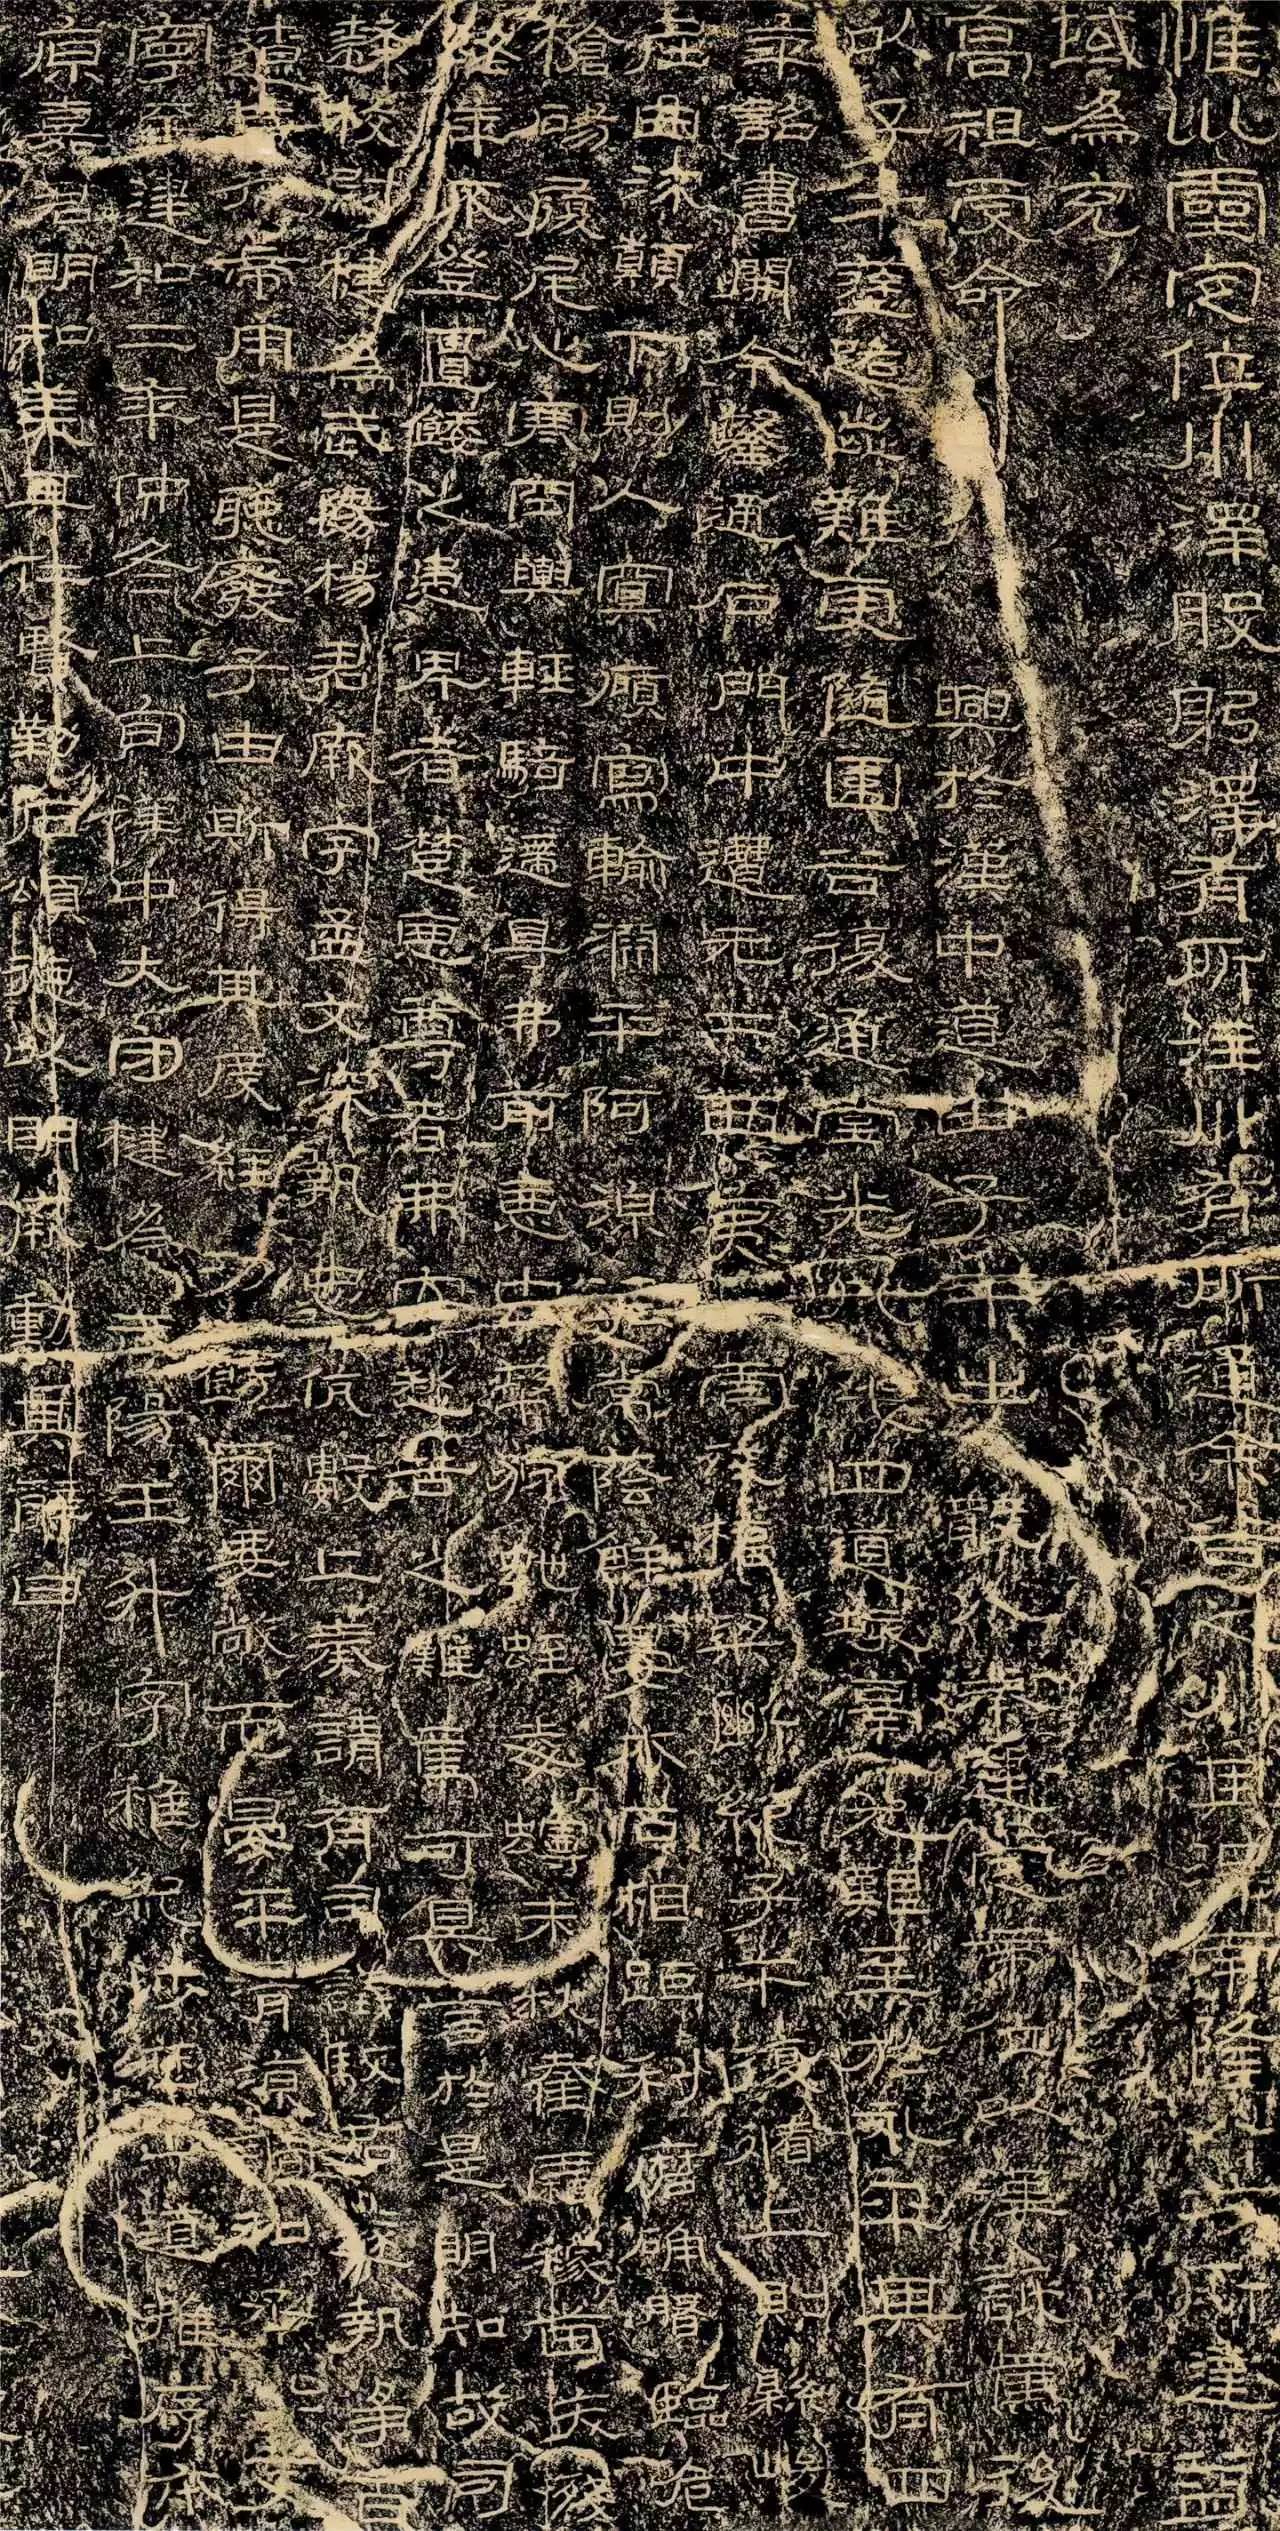 惟巛靈定位川澤股躬澤有所注川有所通余谷之川其澤南隆八方所達益
域為充
高祖受命興於漢中道由子午出散入秦建定帝位以漢詆焉後
以子午塗路歰難更隨圍谷復通堂光凡此四道垓鬲尤艱至於永平其有四
年詔書開余鑿通石門中遭元二西夷虐殘橋梁斷絕子午復循上則縣峻
屈曲流顛下則入冥廎寫輸淵平阿淖泥常蔭鮮晏木石相距利磨确磐臨危
槍碭履尾心寒空輿輕騎遰㝵弗前惡虫狩蛇蛭毒蟃未秋截霜稼苗夭殘
終年不登匱餧之患卑者楚惡尊者弗安愁苦之難焉可具言於是明知故司
隸校尉楗為武陽楊君厥字孟文深執忠伉數上奏請有司議駮君遂執爭百
遼咸從帝用是聽廢子由斯得其度經功飭爾要敞而晏平清涼調和烝烝艾
寧至建和二年仲冬上旬漢中大守楗為武陽王升字稚紀涉歷山道推序本
原嘉君明知美其仁賢勒石頌德以明厥勳其辭曰